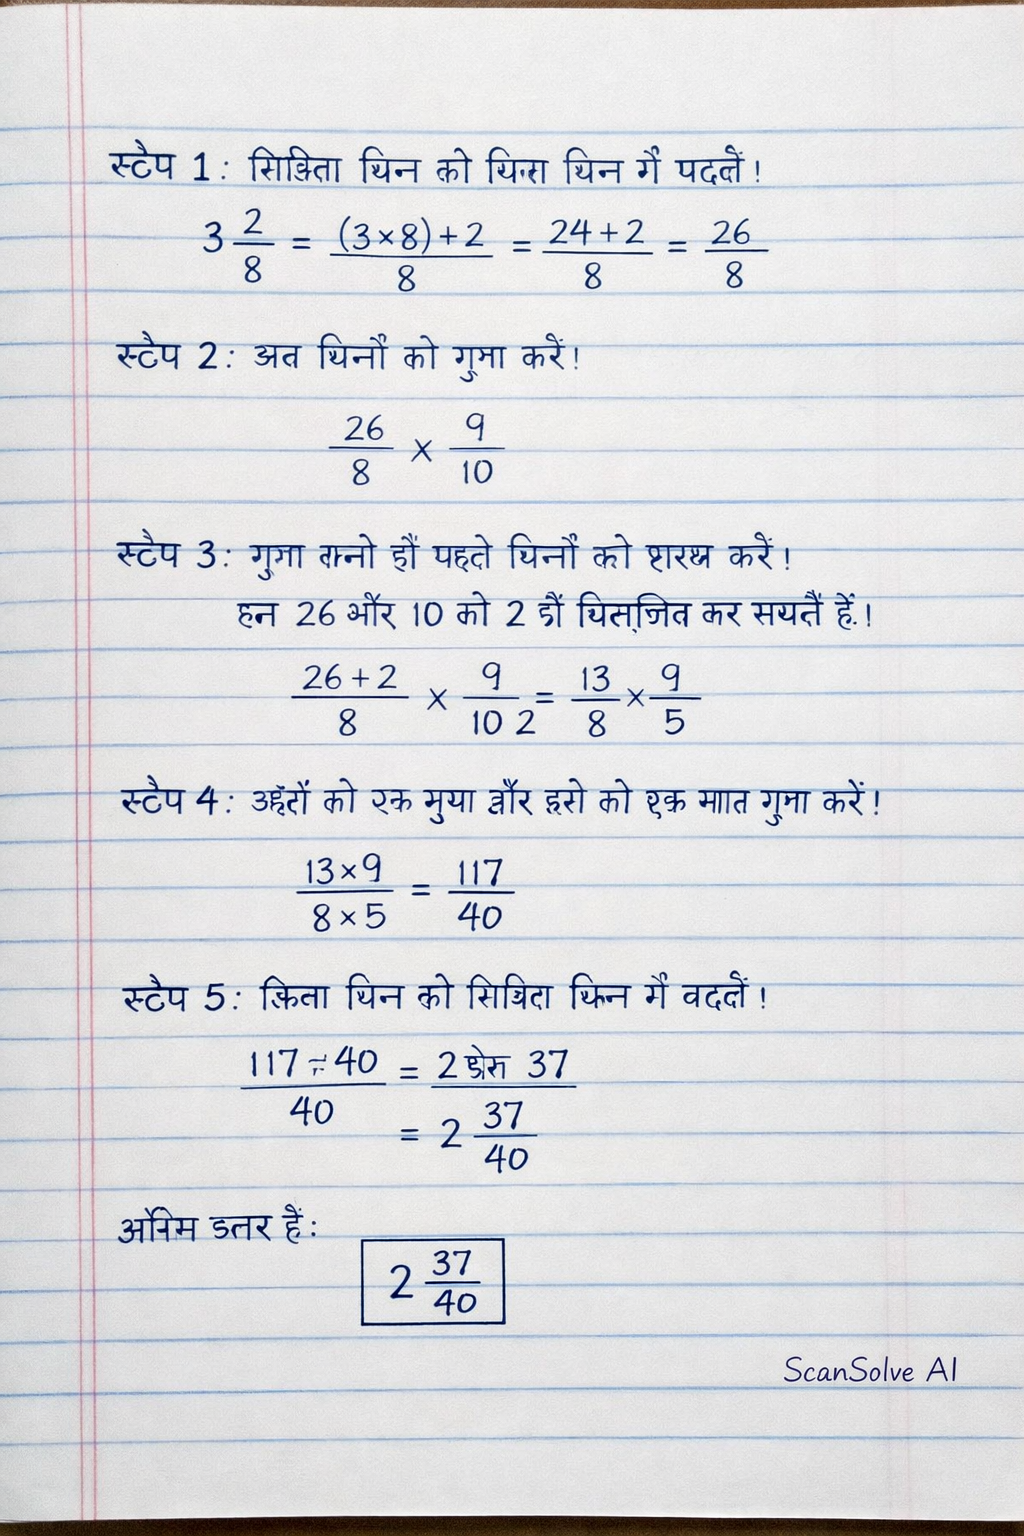 स्टेप 1: सिक्रिता थिन को थिरा थिन गैं पदतें!
3 2/8 = (3×8)+2/8 = 24+2/8 = 26/8
स्टेप 2: अत थिनों को गुमा करें!
26/8 × 9/10
स्टेप 3: गुगा तानो हौं पहदो थिनों को करें!
हन 26 और 10 को 2 कर सयतैं हैं.!
26+2/8 × 9/10 2 = 13/8 × 9/5
स्टेप 4: को एक मुया और इसे को एक मात गुमा करें!
13×9/8×5 = 117/40
स्टेप 5: किता थिन को सिब्रिदा फिन गैं वदतें!
117 ÷ 40/40 = 2 37
= 2 37/40
अंतिम उतर हैं:
2 37/40
ScanSolve AI